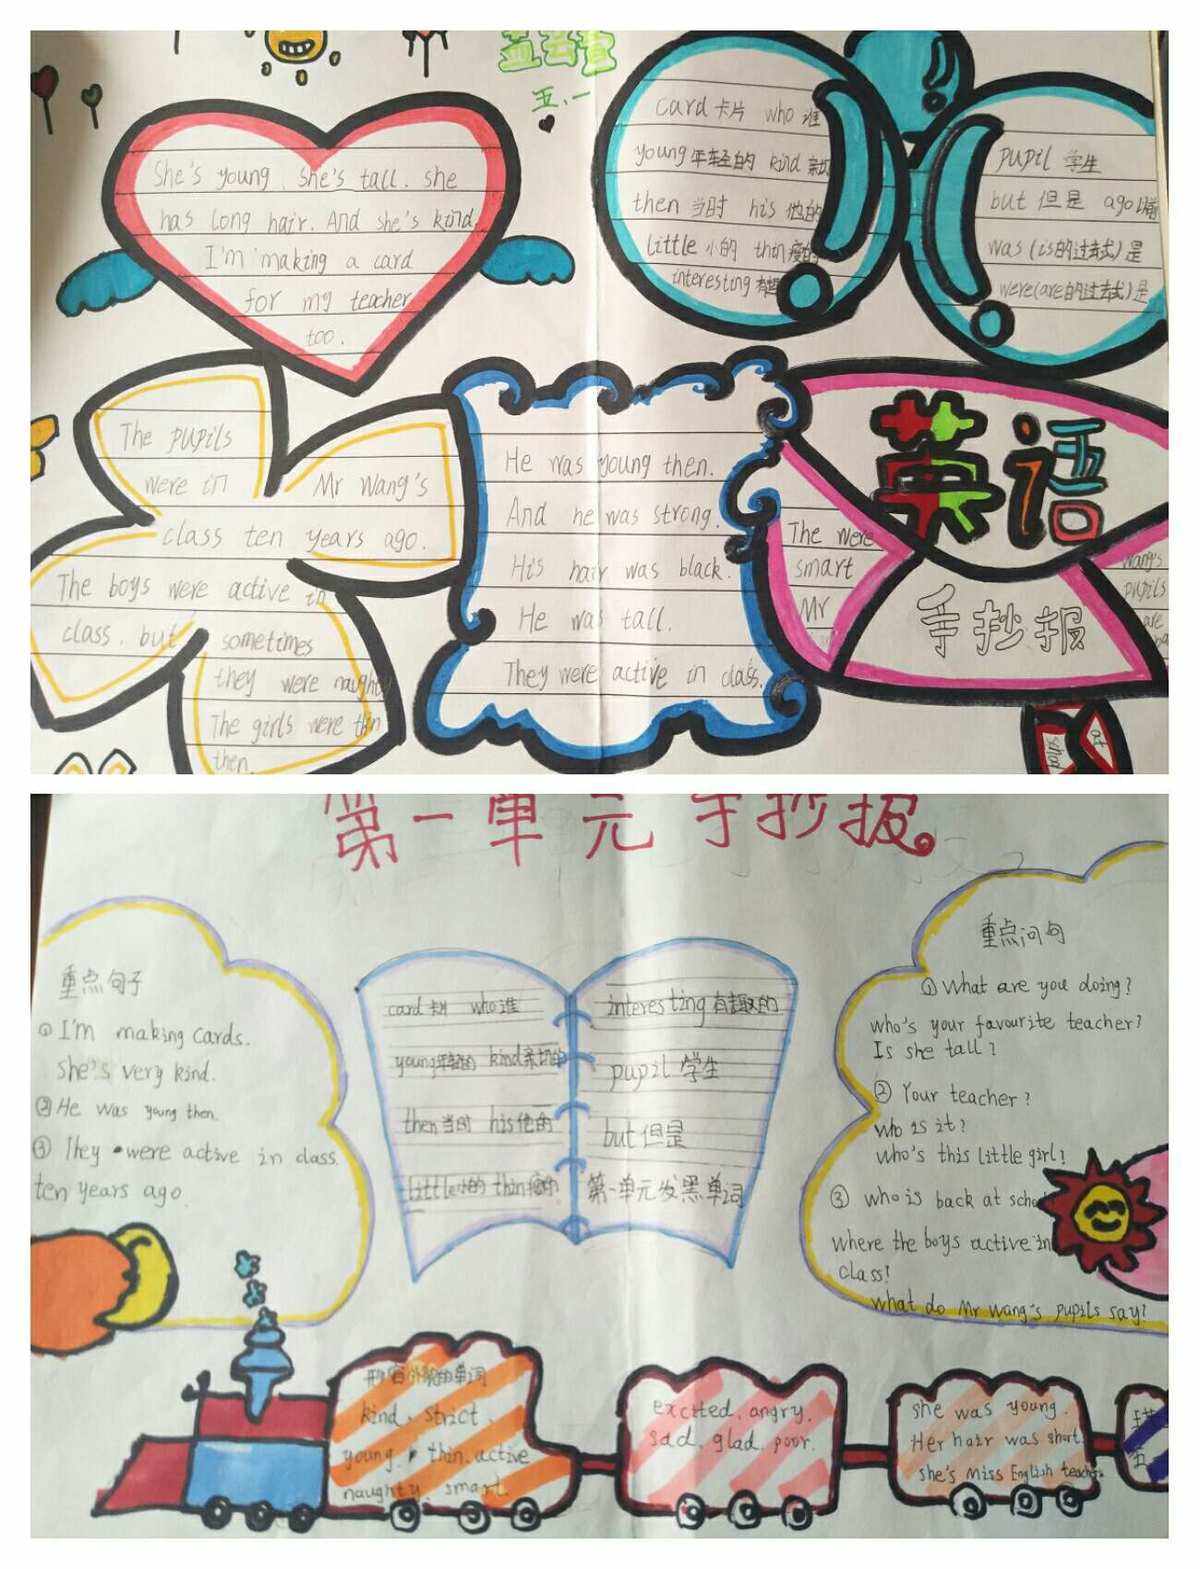 五、一
She's young. She's tall. she
has long hair. And she's kind.
I'm making a card
for my teacher
too.
card 卡片 who 谁
young 年轻的 kind 亲切
then 当时 his 他的
little 小的 thin 瘦的
interesting 有趣
pupil 学生
but 但是 ago 以前
was (is的过去式) 是
were (are的过去式) 是
The pupils
were in Mr Wang's
class ten years ago.
The boys were active in
class. but sometimes
they were naughty
The girls were thin
then.
He was young then.
And he was strong.
His hair was black.
He was tall.
They were active in class.
英语
手抄报
The were
smart
Mr
Wang's
pupils
are
school
at
第一单元手抄报
重点句子
① I'm making cards.
she's very kind.
② He was young then.
③ They were active in class.
ten years ago.
card 卡片 who 谁
young 年轻的 kind 亲切的
then 当时 his 他的
little 小的 thin 瘦的
interesting 有趣的
pupil 学生
but 但是
第一单元发黑单词
重点问句
① What are you doing?
who's your favourite teacher?
Is she tall?
② Your teacher?
who is it?
who's this little girl?
③ who is back at school
where the boys active in
class?
what do Mr Wang's pupils say?
形容外貌的单词
kind、strict、
young、thin. active
naughty. smart.
excited. angry.
sad. glad. poor.
she was young.
Her hair was short.
she's Miss English teacher.
五